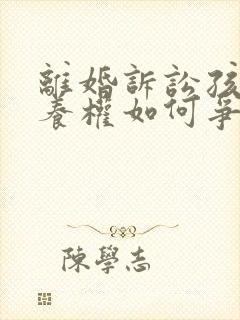 離婚訴訟孩
養權如何爭
陳學志